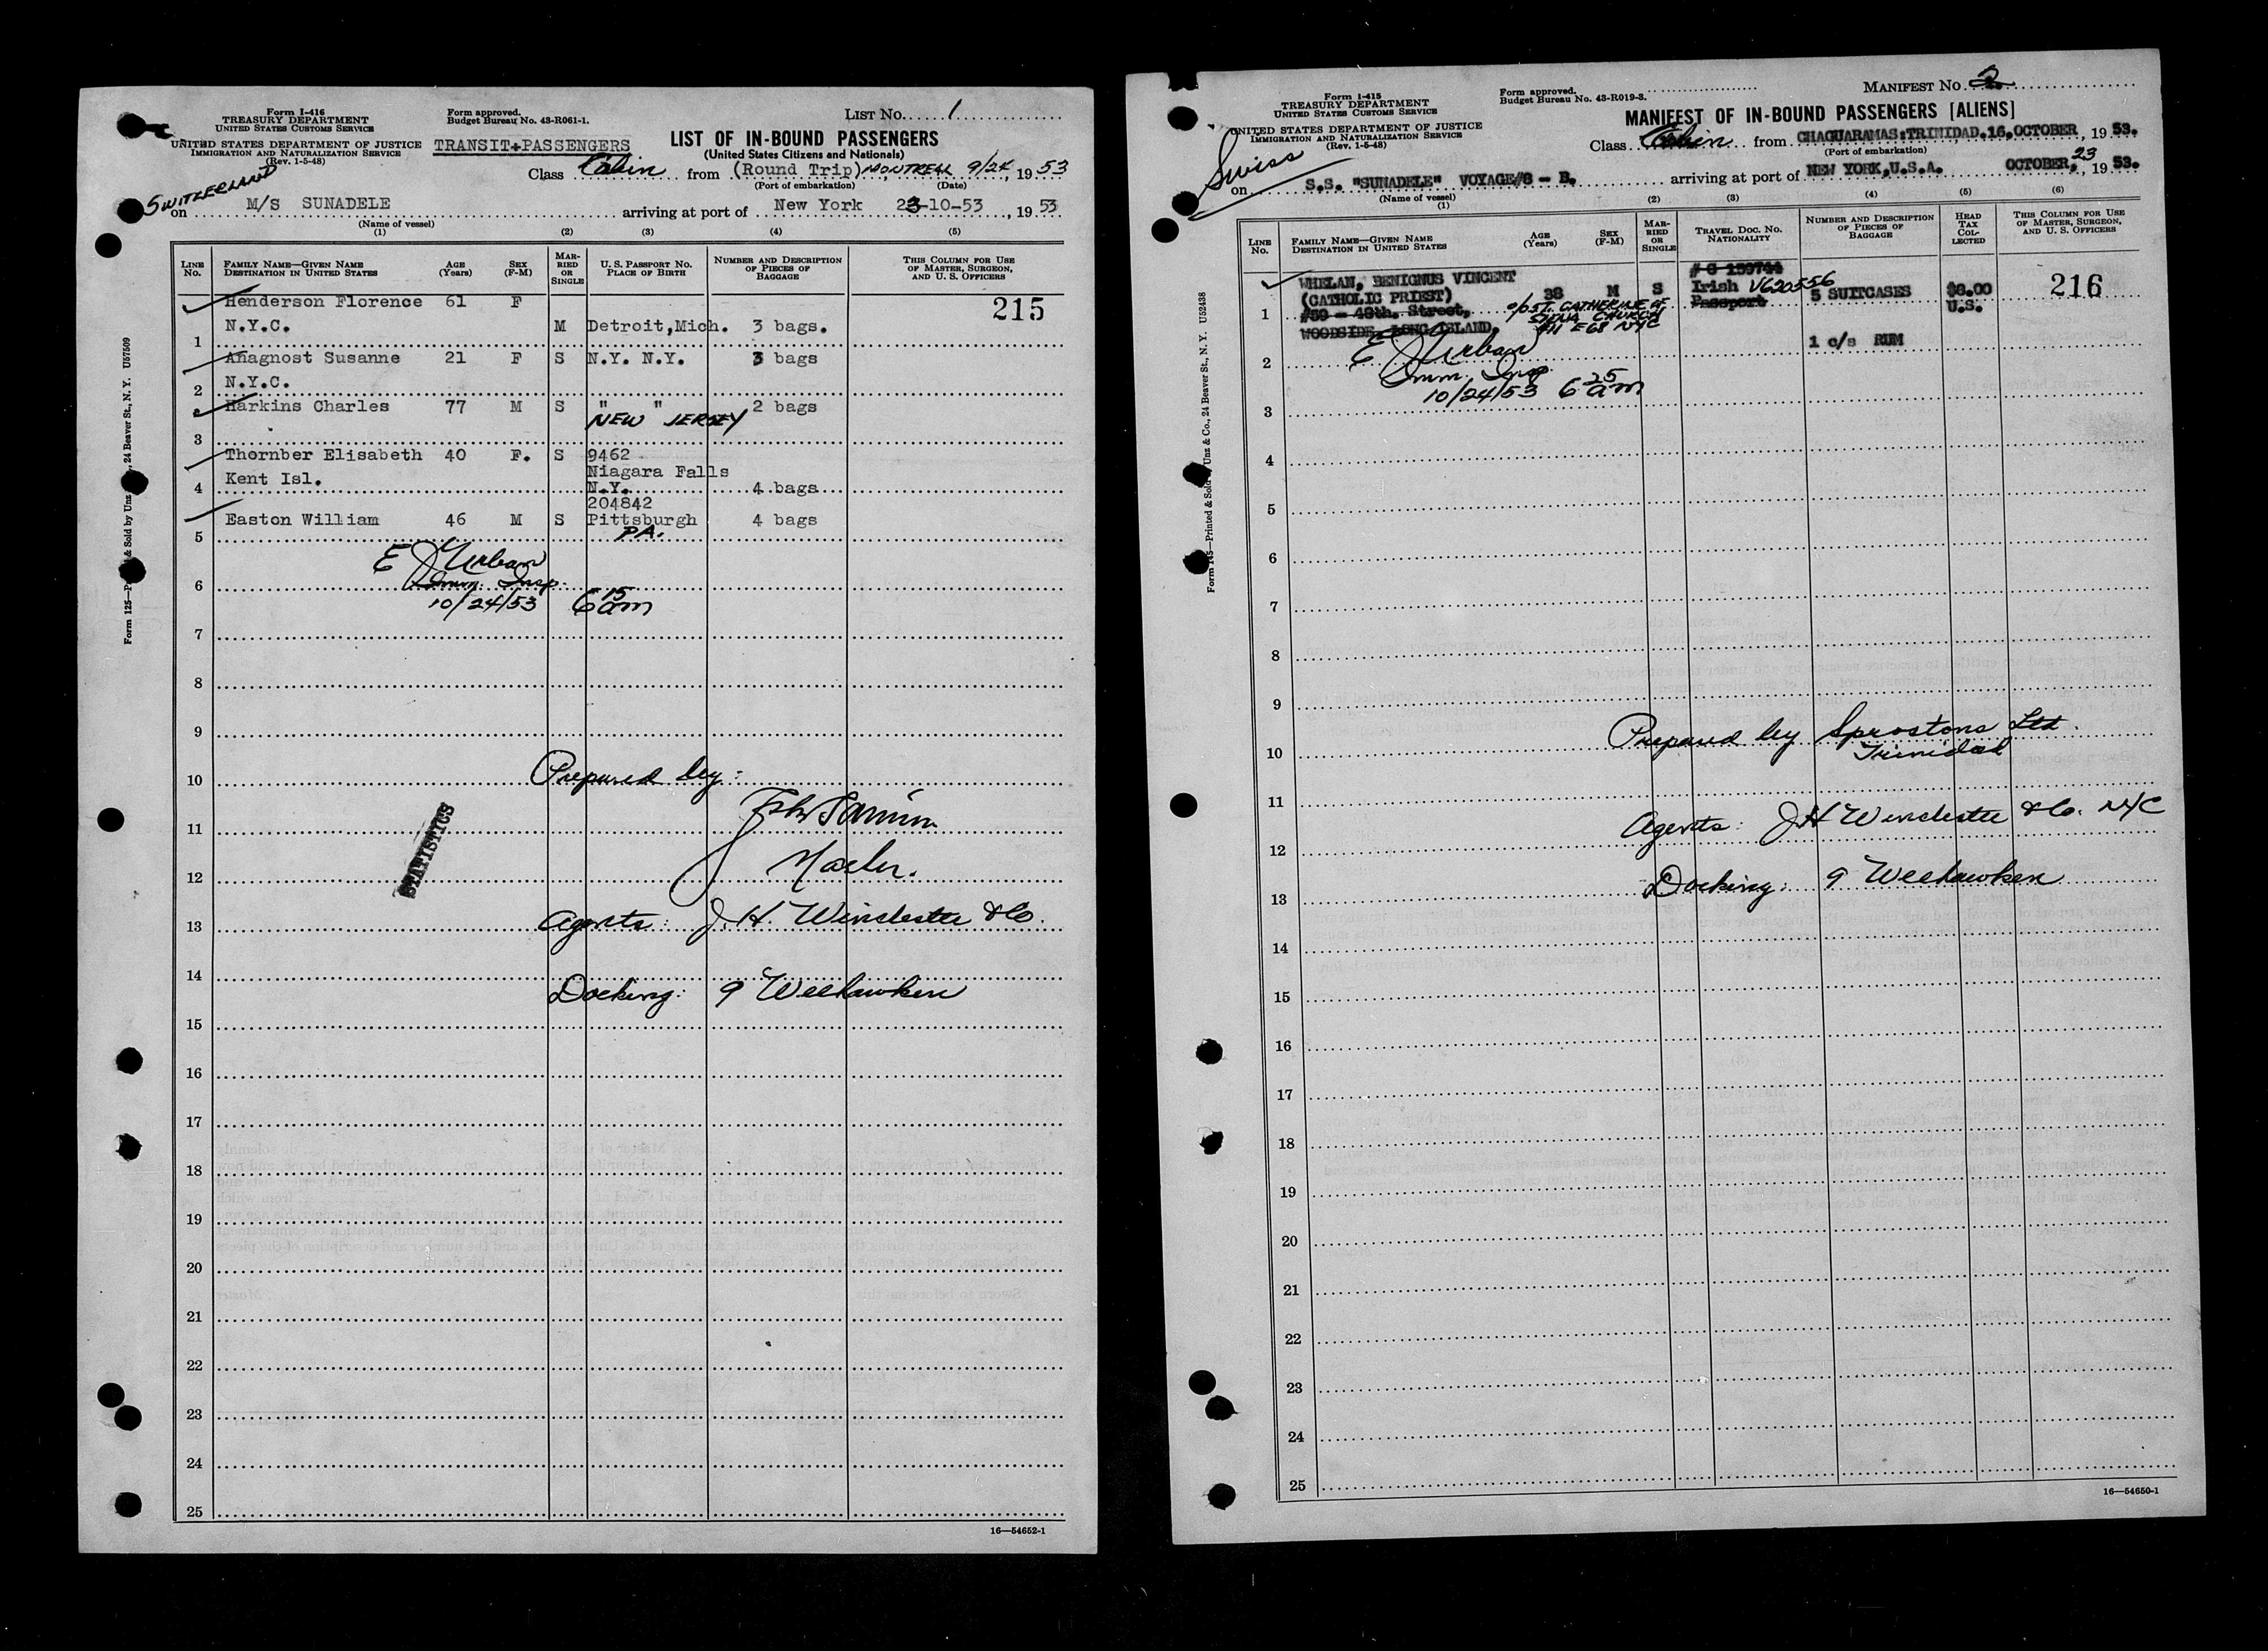 Form I-416
TREASURY DEPARTMENT
UNITED STATES CUSTOMS SERVICE
UNITED STATES DEPARTMENT OF JUSTICE
IMMIGRATION AND NATURALIZATION SERVICE
(Rev. 1-5-48)
Form approved.
Budget Bureau No. 43-R061-1.
TRANSIT+PASSENGERS
LIST No. 1
LIST OF IN-BOUND PASSENGERS
(United States Citizens and Nationals)
Class Cabin from (Round Trip) MONTREAL 9/24, 1953
(Port of embarkation) (Date)
SWITZERLAND
on M/S SUNADELE arriving at port of New York 23-10-53, 1953
(Name of vessel)
(1) (2) (3) (4) (5)
LINE No.
FAMILY NAME—GIVEN NAME
DESTINATION IN UNITED STATES
AGE (Years)
SEX (F-M)
MARRIED OR SINGLE
U. S. PASSPORT No.
PLACE OF BIRTH
NUMBER AND DESCRIPTION OF PIECES OF BAGGAGE
THIS COLUMN FOR USE OF MASTER, SURGEON, AND U. S. OFFICERS
215
Henderson Florence 61 F
1 N.Y.C. M Detroit,Mich. 3 bags.
Anagnost Susanne 21 F S N.Y. N.Y. 3 bags
2 N.Y.C.
Harkins Charles 77 M S " " 2 bags
NEW JERSEY
3
Thornber Elisabeth 40 F. S 9462
Kent Isl. Niagara Falls
4 N.Y. 4 bags
204842
Easton William 46 M S Pittsburgh 4 bags
5 PA.
E J Urban
6 Imm. Insp.
10/24/53 6 15 am
7
8
9
10 Prepared by:
11
12
STATISTICS
13 Agents: J. H. Winchester & Co.
14
Docking: 9 Weehawken
15
16
17
18
19
20
21
22
23
24
25
16—54652-1
Form I-415
TREASURY DEPARTMENT
UNITED STATES CUSTOMS SERVICE
UNITED STATES DEPARTMENT OF JUSTICE
IMMIGRATION AND NATURALIZATION SERVICE
(Rev. 1-5-48)
Form approved.
Budget Bureau No. 43-R019-3.
MANIFEST No. 2
MANIFEST OF IN-BOUND PASSENGERS [ALIENS]
Class Cabin from CHAGUARAMAS:TRINIDAD.16.OCTOBER, 1953.
(Port of embarkation)
Swiss
on S.S. "SUNADELE" VOYAGE#8 - B. arriving at port of NEW YORK,U.S.A. OCTOBER, 23, 1953.
(Name of vessel)
(1) (2) (3) (4) (5) (6)
LINE No.
FAMILY NAME—GIVEN NAME
DESTINATION IN UNITED STATES
AGE (Years)
SEX (F-M)
MARRIED OR SINGLE
TRAVEL DOC. No.
NATIONALITY
NUMBER AND DESCRIPTION OF PIECES OF BAGGAGE
HEAD TAX COLLECTED
THIS COLUMN FOR USE OF MASTER, SURGEON, AND U. S. OFFICERS
WHELAN, BENIGNUS VINCENT
(CATHOLIC PRIEST) 38 M S Irish V620556 5 SUITCASES $8.00 216
Passport U.S.
1 #59 - 48th. Street, c/o ST. CATHERINE OF
WOODSIDE, LONG ISLAND, SIENA CHURCH
411 E68 NYC
1 c/s RUM
2 E J Urban
Imm. Insp.
3 10/24/53 6 25 am
4
5
6
7
8
9
10 Prepared by Sprostons Ltd.
Trinidad
11
Agents: J H Winchester & Co. NYC
12
13 Docking: 9 Weehawken
14
15
16
17
18
19
20
21
22
23
24
25
16—54650-1